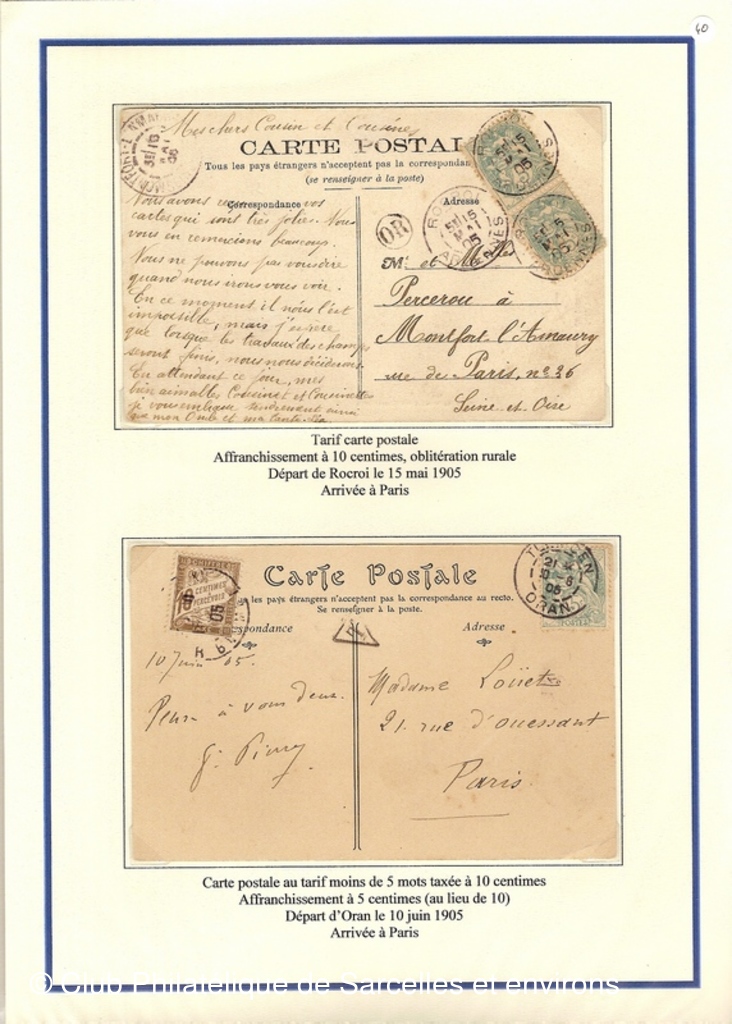 40
Mes chers Cousin et Cousines
CARTE POSTAL
Tous les pays étrangers n'acceptent pas la correspondan
(se renseigner à la poste)
Correspondance
Adresse
Nous avons reçu vos
cartes qui sont très jolies. Nous
vous en remercions beaucoup.
Nous ne pouvons pas vous dire
quand nous irons vous voir.
En ce moment il nous l'est
impossible, mais j'espère
que lorsque les travaux des champs
seront finis, nous nous déciderons.
En attendant ce jour, mes
bien aimables Cousinet et Cousinettes
je vous embrasse tendrement ainsi
que mon Oncle et ma tante.
OR
ROCROI
15
MAI
05
ARDENNES
M. et Melles
Percerou à
Montfort l'Amaury
rue de Paris, no 36
Seine et Oise
Tarif carte postale
Affranchissement à 10 centimes, oblitération rurale
Départ de Rocroi le 15 mai 1905
Arrivée à Paris
CHIFFRE
10
CENTIMES
A PERCEVOIR
Carte Postale
les pays étrangers n'acceptent pas la correspondance au recto.
Se renseigner à la poste.
spondance
Adresse
TLEMCEN
10 - 6
05
ORAN
POSTES
T
10 Juin 05.
à vous deux.
Madame Loüet
21. rue d'ouessant
Paris
Carte postale au tarif moins de 5 mots taxée à 10 centimes
Affranchissement à 5 centimes (au lieu de 10)
Départ d'Oran le 10 juin 1905
Arrivée à Paris
© Club Philatélique de Sarcelles et environs